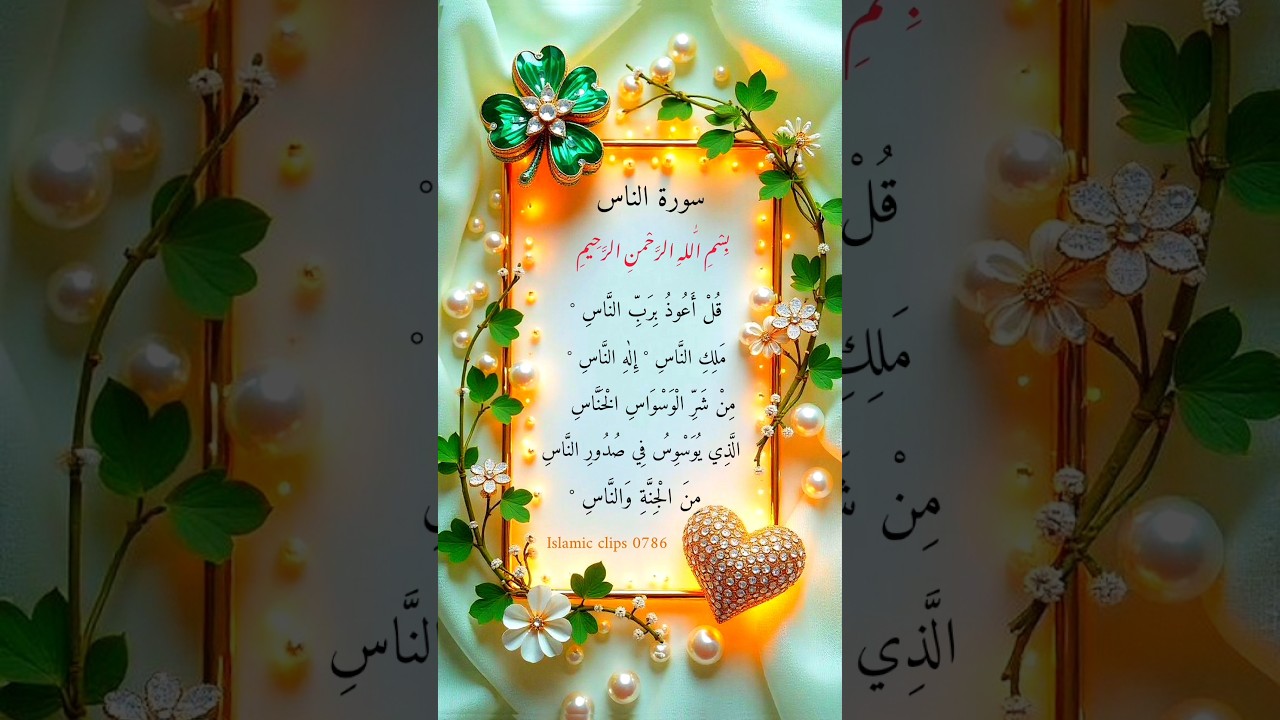 سورة الناس
بِسْمِ اللّٰهِ الرَّحْمٰنِ الرَّحِيمِ
قُلْ أَعُوذُ بِرَبِّ النَّاسِ ْ
مَلِكِ النَّاسِ ْ إِلٰهِ النَّاسِ ْ
مِنْ شَرِّ الْوَسْوَاسِ الْخَنَّاسِ
الَّذِي يُوَسْوِسُ فِي صُدُورِ النَّاسِ
مِنَ الْجِنَّةِ وَالنَّاسِ ْ
Islamic clips 0786